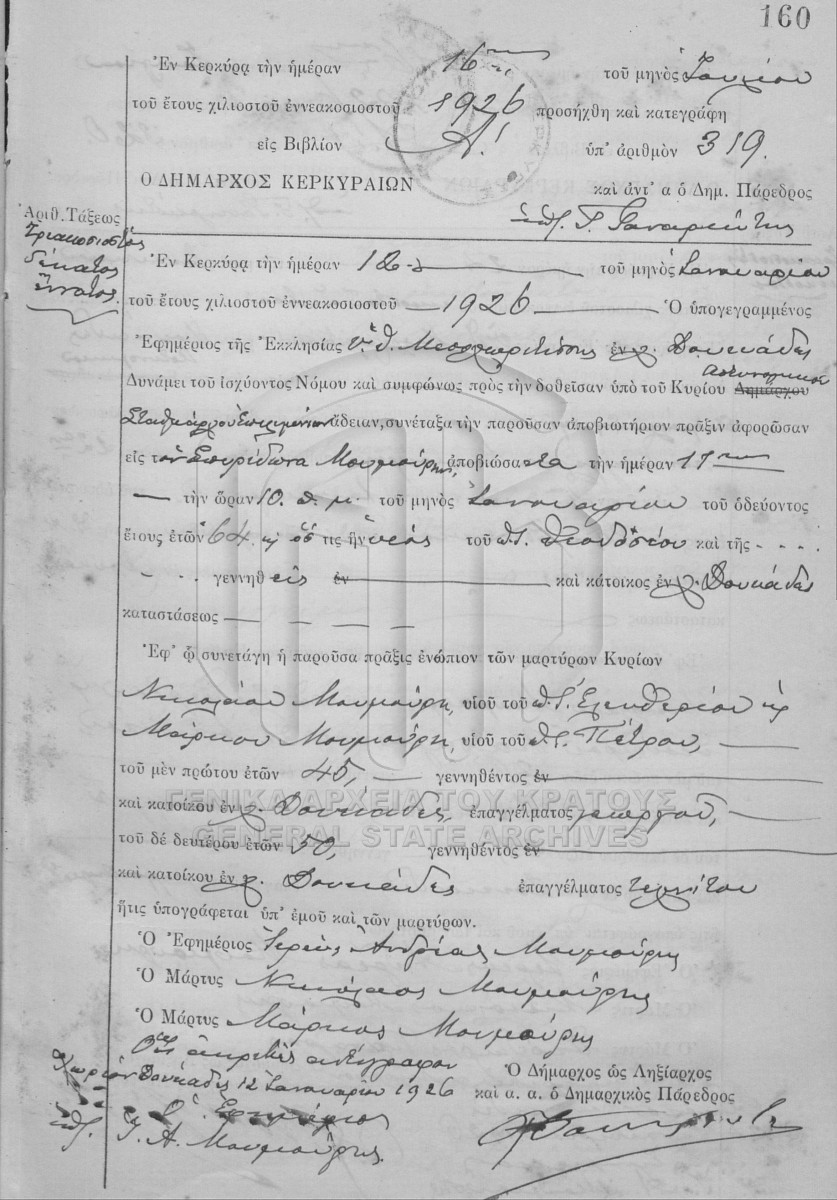 160
Ἐν Κερκύρᾳ τὴν ἡμέραν 16ην τοῦ μηνὸς Ἰουλίου
τοῦ ἔτους χιλιοστοῦ ἐννεακοσιοστοῦ 1926 προσήχθη καὶ κατεγράφη
εἰς Βιβλίον Α! ὑπ' ἀριθμὸν 319.
Ο ΔΗΜΑΡΧΟΣ ΚΕΡΚΥΡΑΙΩΝ καὶ ἀντ' α ὁ Δημ. Πάρεδρος
Ἀριθ. Τάξεως
Τριακοσιοστὸς
δέκατος
ἔννατος.
Ἐν Κερκύρᾳ τὴν ἡμέραν 12 τοῦ μηνὸς Ἰανουαρίου
τοῦ ἔτους χιλιοστοῦ ἐννεακοσιοστοῦ — 1926 — Ὁ ὑπογεγραμμένος
Ἐφημέριος τῆς Ἐκκλησίας Υ. Θ. ἐν χ. Δουκάδες
Ἀστυνομικοῦ
Δυνάμει τοῦ ἰσχύοντος Νόμου καὶ συμφώνως πρὸς τὴν δοθεῖσαν ὑπὸ τοῦ Κυρίου Δημάρχου
Σταθμάρχου ἄδειαν, συνέταξα τὴν παροῦσαν ἀποβιωτήριον πρᾶξιν ἀφορῶσαν
εἰς τὸν Σπυρίδωνα Μουμούρην, ἀποβιώσαντα τὴν ἡμέραν 11ην
— τὴν ὥραν 10. π. μ. τοῦ μηνὸς Ἰανουαρίου τοῦ ὁδεύοντος
ἔτους ἐτῶν 64. κ ὅς τις ἦν υἱὸς τοῦ π. Θεοδοσίου καὶ τῆς - - - -
- - - γεννηθεὶς ἐν — καὶ κάτοικος ἐν χ. Δουκάδες
καταστάσεως — — — —
Ἐφ' ᾧ συνετάγη ἡ παροῦσα πρᾶξις ἐνώπιον τῶν μαρτύρων Κυρίων
Νικολάου Μουμούρη, υἱοῦ τοῦ π. Ἐλευθερίου κ
Μάρκου Μουμούρη, υἱοῦ τοῦ π. Πέτρου, —
τοῦ μὲν πρώτου ἐτῶν 45, — γεννηθέντος ἐν —
καὶ κατοίκου ἐν χ. Δουκάδες, ἐπαγγέλματος γεωργοῦ, —
τοῦ δὲ δευτέρου ἐτῶν 50, γεννηθέντος ἐν —
καὶ κατοίκου ἐν χ. Δουκάδες ἐπαγγέλματος τεχνίτου
ἥτις ὑπογράφεται ὑπ' ἐμοῦ καὶ τῶν μαρτύρων.
Ὁ Ἐφημέριος Ἱερεὺς Ἀνδρέας Μουμούρης
Ὁ Μάρτυς Νικόλαος Μουμούρης
Ὁ Μάρτυς Μάρκος Μουμούρης
Ὅτι ἀκριβὲς ἀντίγραφον
Χωρίον Δουκάδες 12 Ἰανουαρίου 1926
Ὁ Ἐφημέριος
Ἱ. Α. Μουμούρης.
Ὁ Δήμαρχος ὡς Ληξίαρχος
καὶ α. α. ὁ Δημαρχικὸς Πάρεδρος
ΓΕΝΙΚΑ ΑΡΧΕΙΑ ΤΟΥ ΚΡΑΤΟΥΣ
GENERAL STATE ARCHIVES